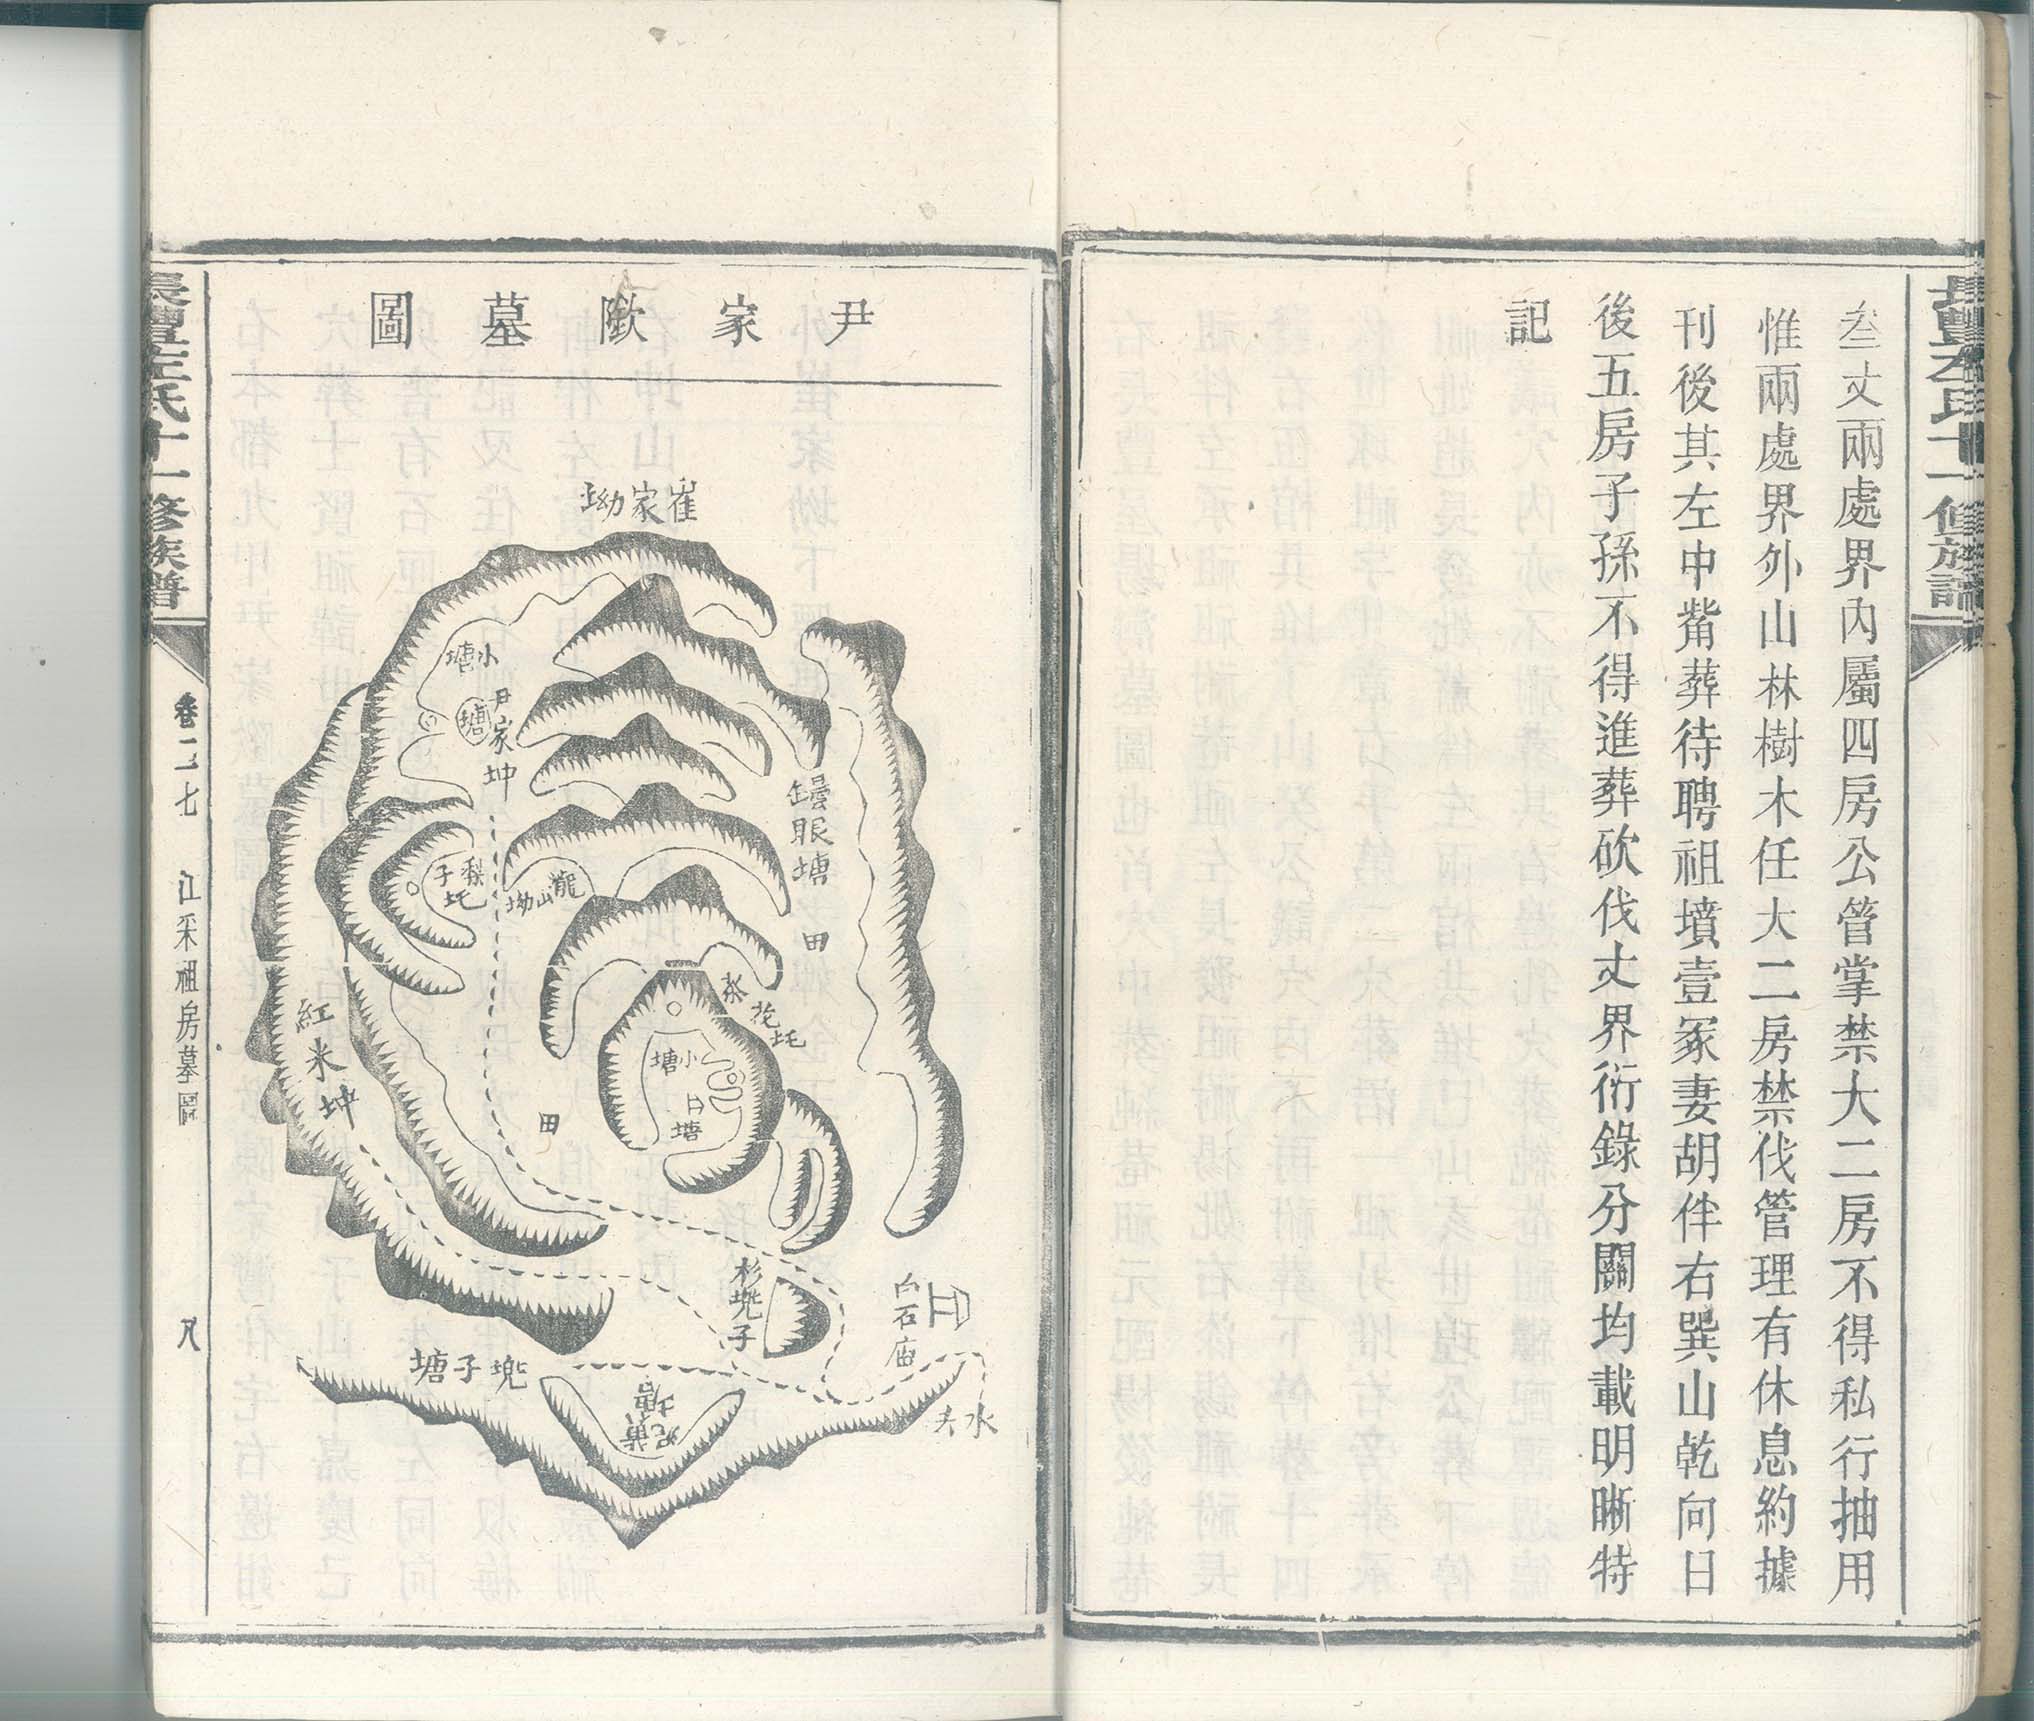 長豐左氏十一修族譜
叁丈兩處界內屬四房公管掌禁大二房不得私行抽用
惟兩處界外山林樹木任大二房禁伐管理有休息約據
刊後其左中觜葬待聘祖墳壹冢妻胡伴右巽山乾向日
後五房子孫不得進葬砍伐丈界衍錄分關均載明晰特
記
尹家歘墓圖
崔家坳
小塘
塘
尹家坤
眼塘
梨子圫
龍山坳
田
茶花圫
小塘
日塘
紅米坤
田
杉兜子
白石庙
兜子塘
水去
長豐左氏十一修族譜
卷二七
江采祖房墓圖
八